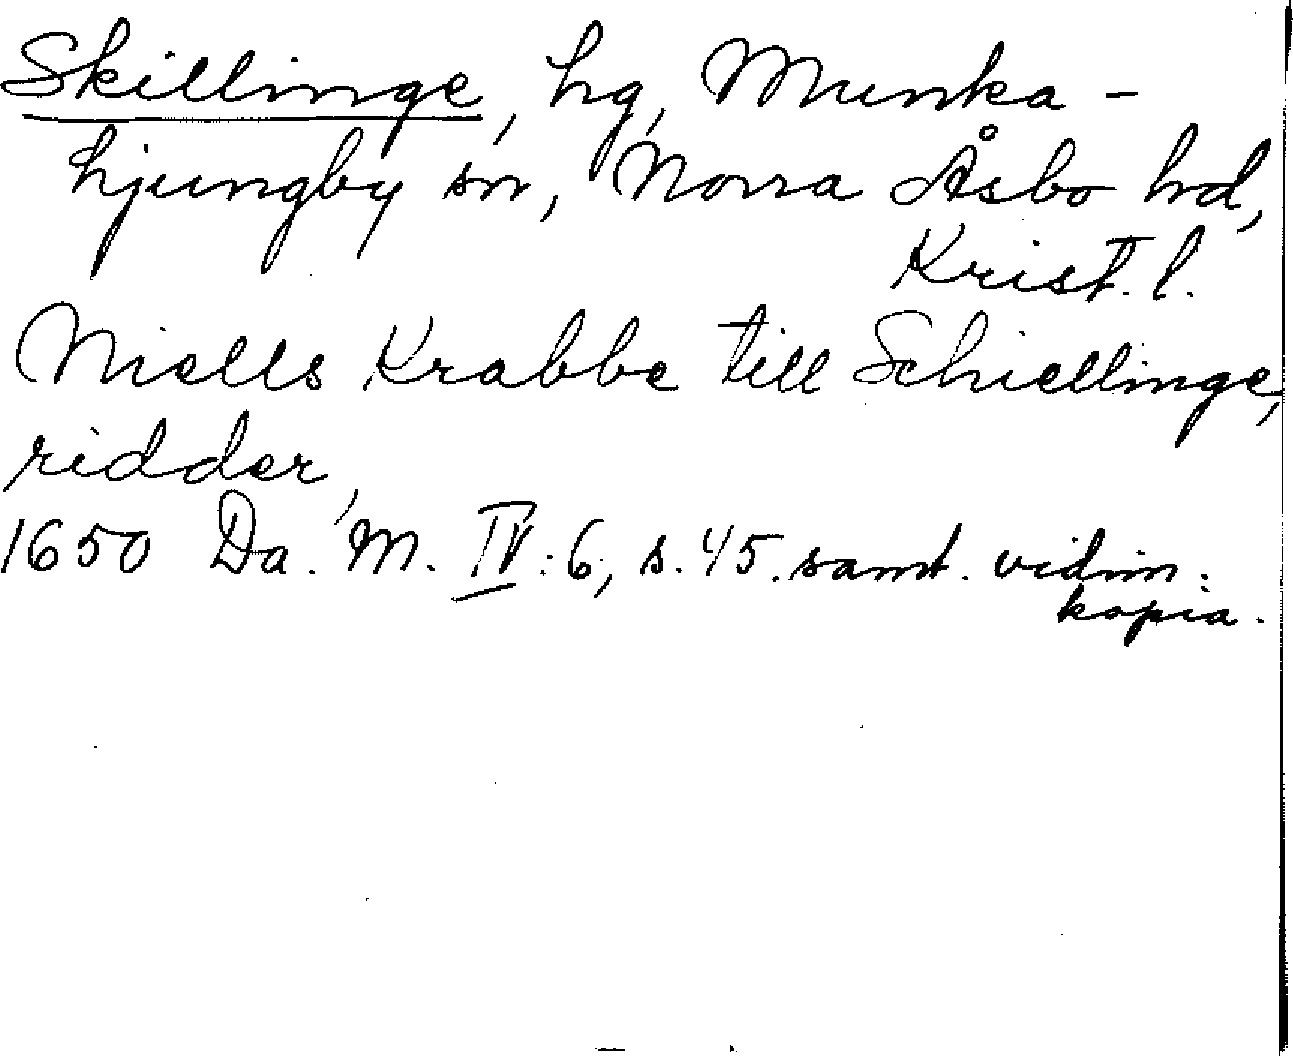 Skillinge, hg, Munka-
hjungby sn, Norra Åsbo hd,
Krist. l.
Niells Krabbe till Schiellinge,
ridder,
1650 Da. M. IV: 6, s. 45. samt. vidim.
kopia.